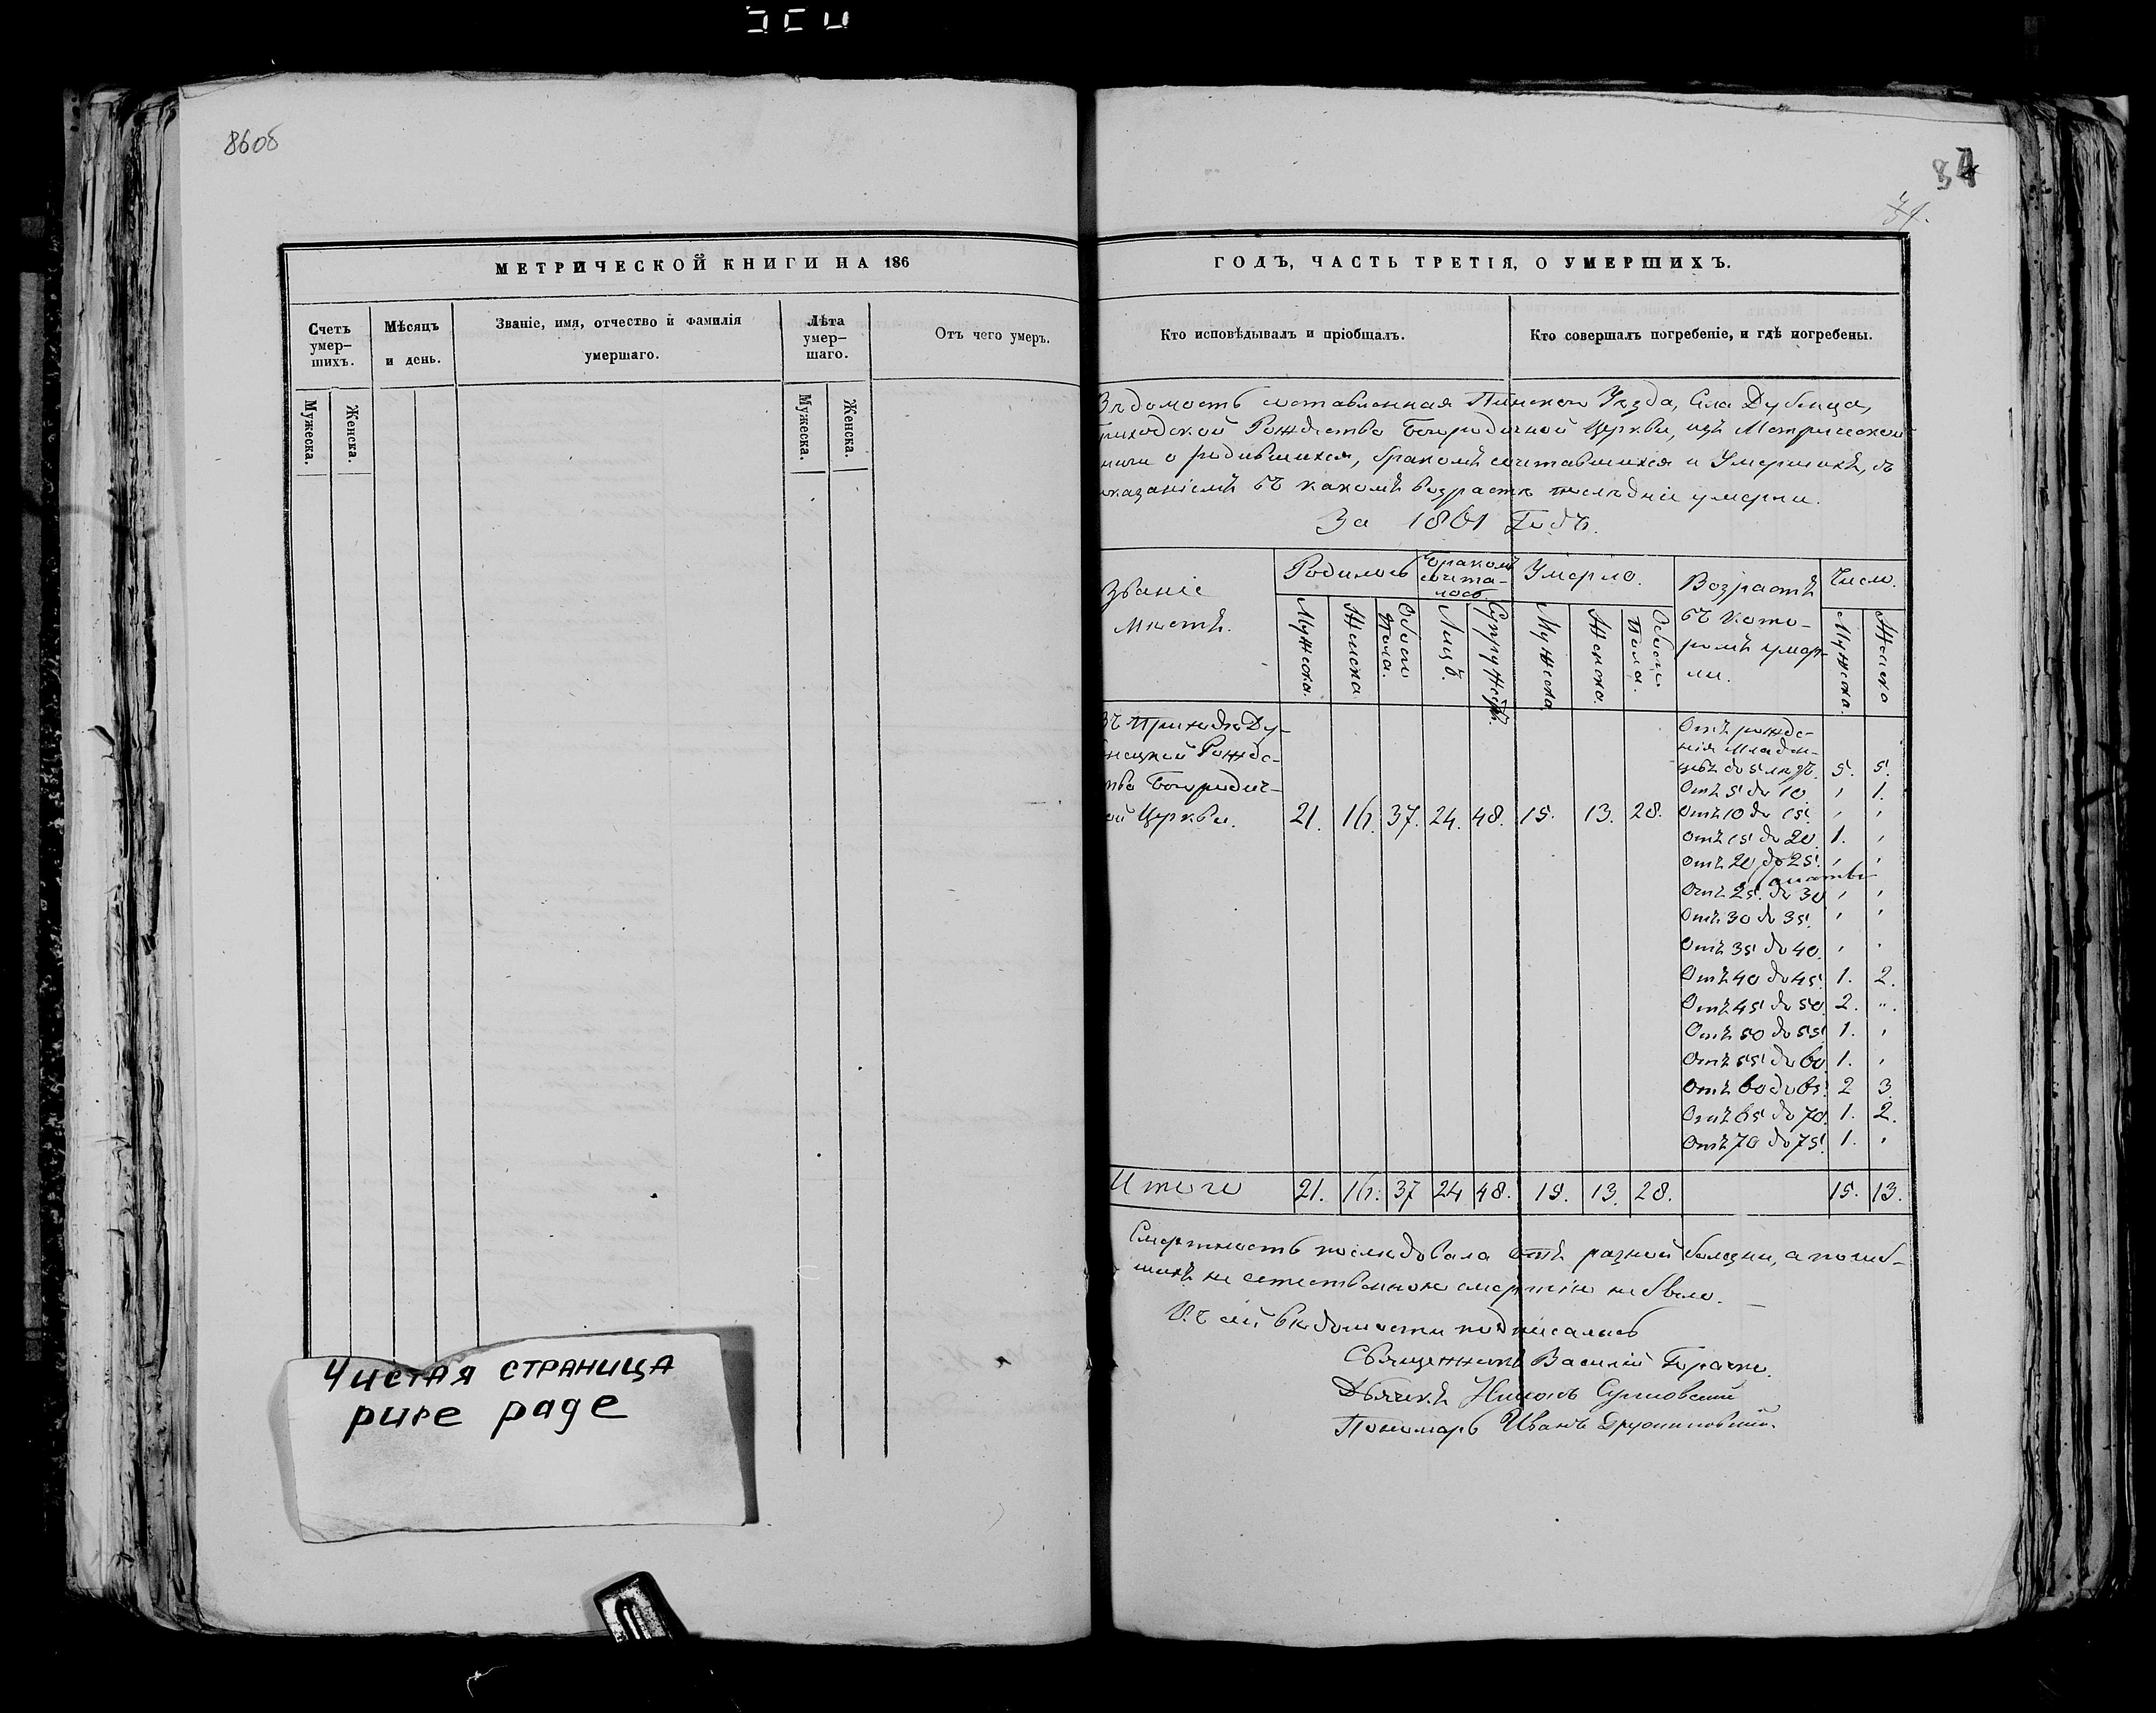 86об
МЕТРИЧЕСКОЙ КНИГИ НА 186
Счетъ умер-шихъ.
Мужеска.
Женска.
Мѣсяцъ и день.
Званіе, имя, отчество и фамилія умершаго.
Лѣта умер-шаго.
Мужеска.
Женска.
Отъ чего умеръ.
Чистая страница
pure page
87
ГОДЪ, ЧАСТЬ ТРЕТІЯ, О УМЕРШИХЪ.
Кто исповѣдывалъ и пріобщалъ.
Кто совершалъ погребеніе, и гдѣ погребены.
Вѣдомость составленная Пинскаго Уѣзда, Села Дубница,
приходской Рождество Богородичной Церкви, изъ Метрической
книги о родившихся, бракомъ сочетавшихся и Умершихъ, съ
указаніемъ въ какомъ возрастѣ послѣдніе умерли.
За 1861 Годъ.
Званіе мѣстъ.
Родилось
Мужеска.
Женска
Обоего пола.
Бракомъ сочета-лось.
Лицъ.
Супружествъ.
Умерло.
Мужеска
Женска.
Обоего Пола.
Возрастъ въ кото-ромъ умер-ли.
Число.
Мужеска.
Женска
Въ Приходѣ Ду-
Рожде-
ства Богородич-
ной Церкви. 21. 16. 37. 24. 48. 15. 13. 28.
Отъ рожде-
нія младен-
цевъ до 5 лѣтъ. 5. 5.
Отъ 5 до 10 , 1.
Отъ 10 до 15. , ,
Отъ 15 до 20. 1. ,
Отъ 20 до 25. , ,
Отъ 25. до 30 , ,
Отъ 30 до 35. , ,
Отъ 35 до 40. , ,
Отъ 40 до 45. 1. 2.
Отъ 45 до 50. 2. „.
Отъ 50 до 55. 1. ,
Отъ 55 до 60. 1. ,
Отъ 60 до 65. 2 3.
Отъ 65 до 70. 1. 2.
Отъ 70 до 75. 1. ,
Итого 21. 16. 37 24 48. 15. 13. 28. 15. 13.
Смертность послѣдовала отъ разной болезни, а погиб-
шихъ не естественною смертію не было.
Къ сей вѣдомости подписались
Священникъ Василій
Дьячекъ
Пономарь Иванъ